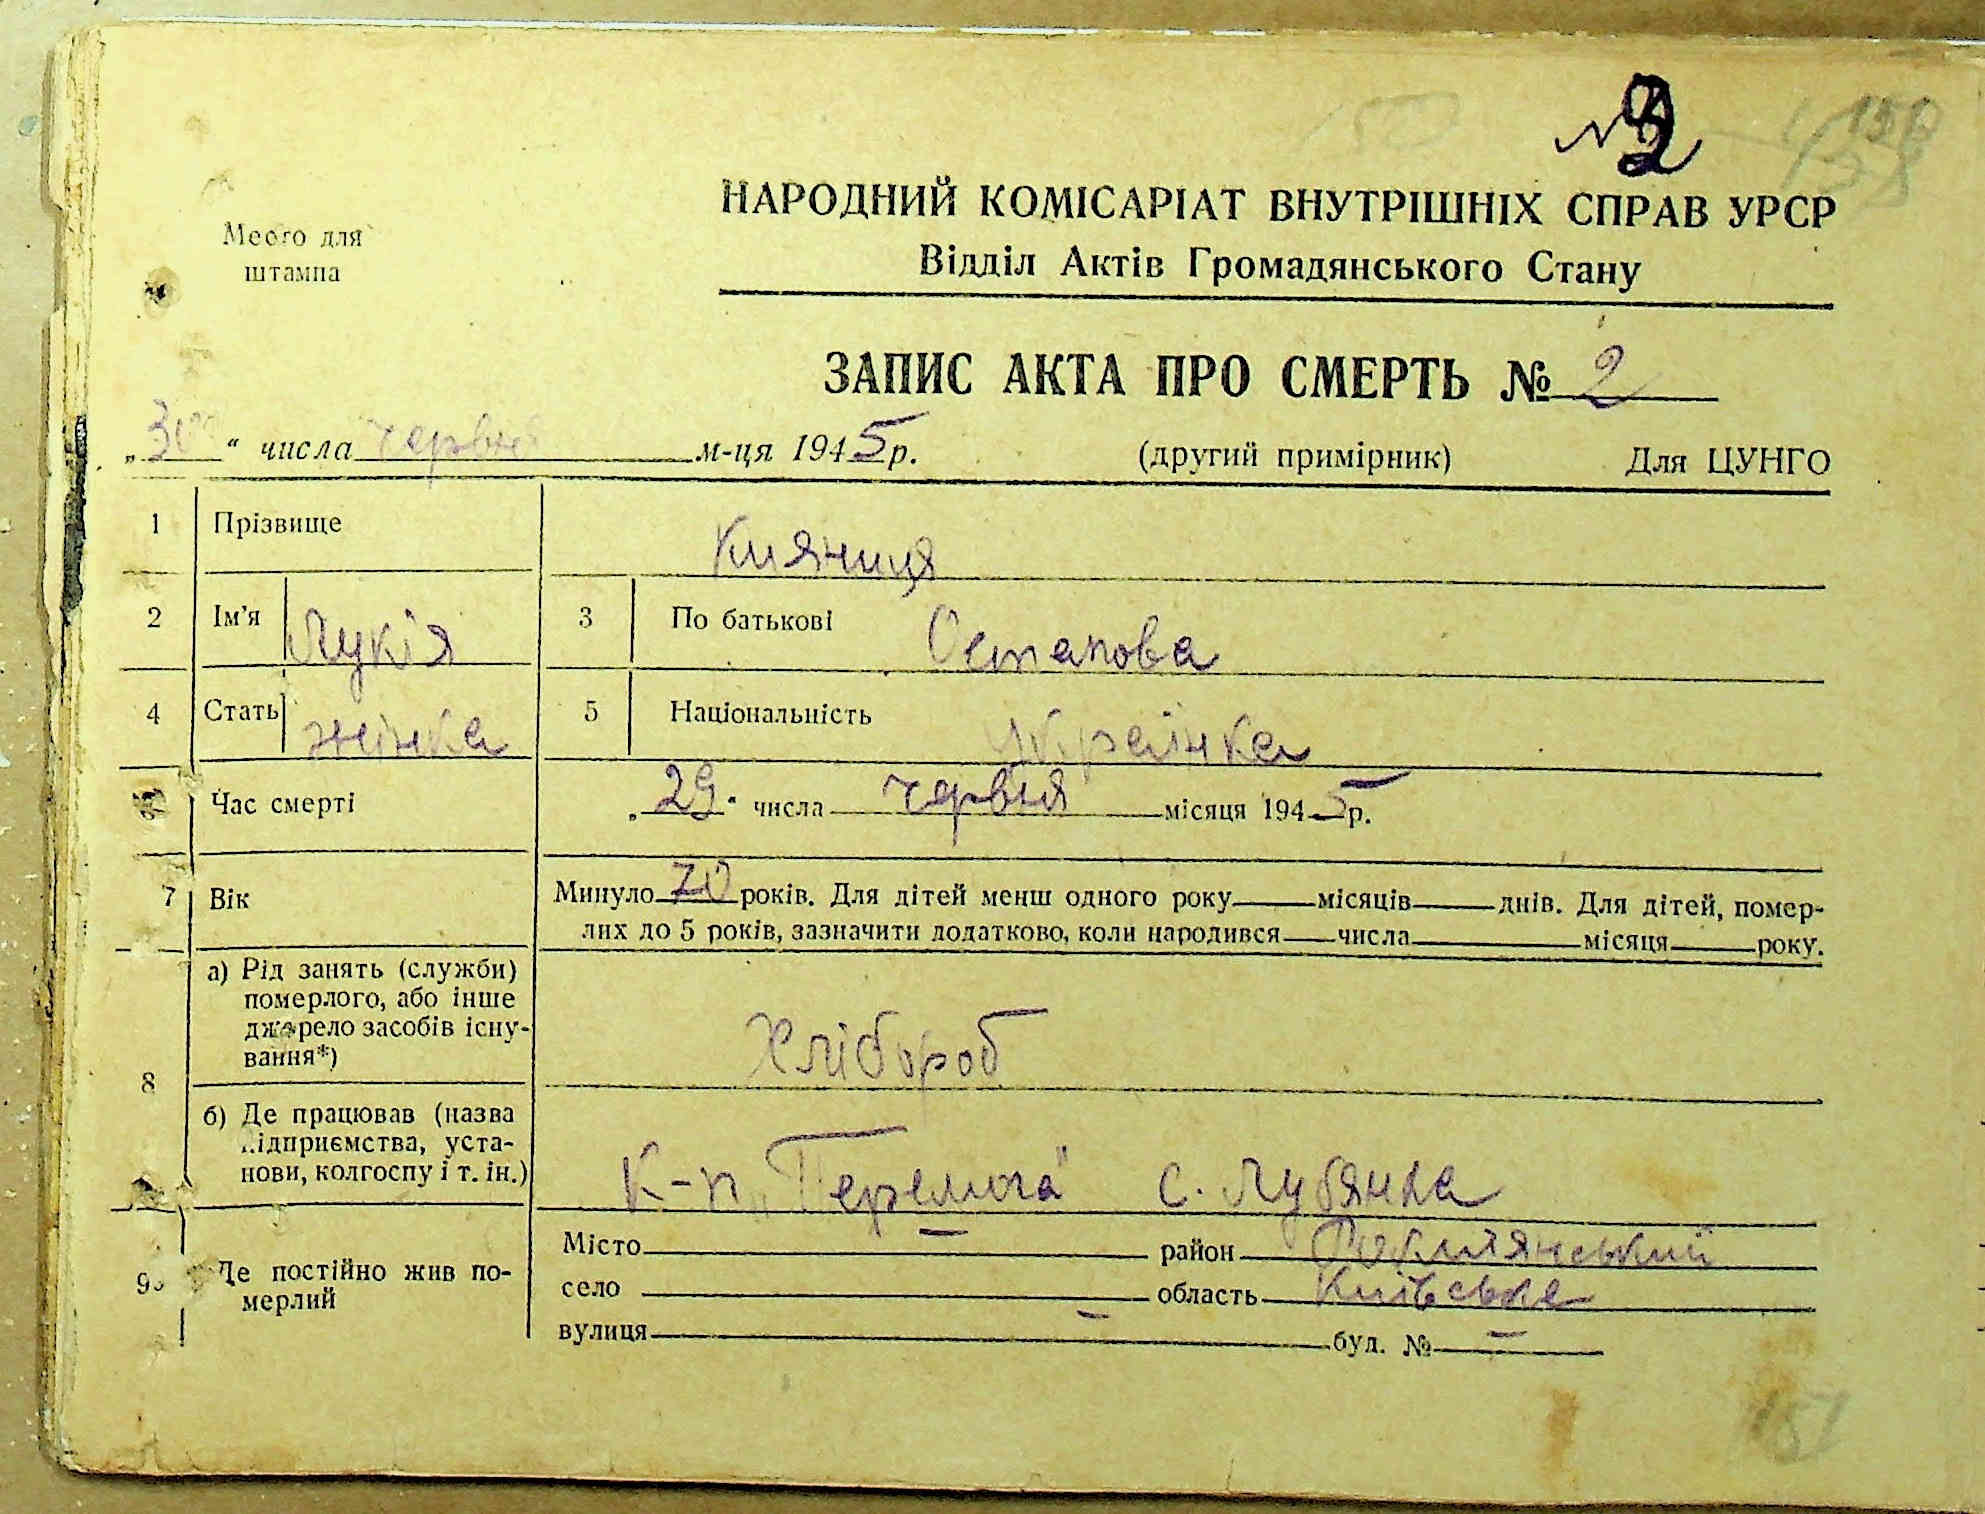 № 2
НАРОДНИЙ КОМІСАРІАТ ВНУТРІШНІХ СПРАВ УРСР
Відділ Актів Громадянського Стану
Место для
штампа
ЗАПИС АКТА ПРО СМЕРТЬ № 2
„30“ числа червня м-ця 1945 р. (другий примірник) Для ЦУНГО
1 Прізвище Кияниця
2 Ім'я Лукія 3 По батькові Остапова
4 Стать жінка 5 Національність Українка
Час смерті „29“ числа червня місяця 1945 р.
7 Вік Минуло 70 років. Для дітей менш одного року місяців днів. Для дітей, помер-
лих до 5 років, зазначити додатково, коли народився числа місяця року.
8 а) Рід занять (служби)
померлого, або інше
джерело засобів існу-
вання*) Хлібороб
б) Де працював (назва
підприємства, уста-
нови, колгоспу і т. ін.) К-п „Перемога" с. Лубянка
9 Де постійно жив по-
мерлий
Місто — район Рокитянський
село — область Київська
вулиця буд. № —
151